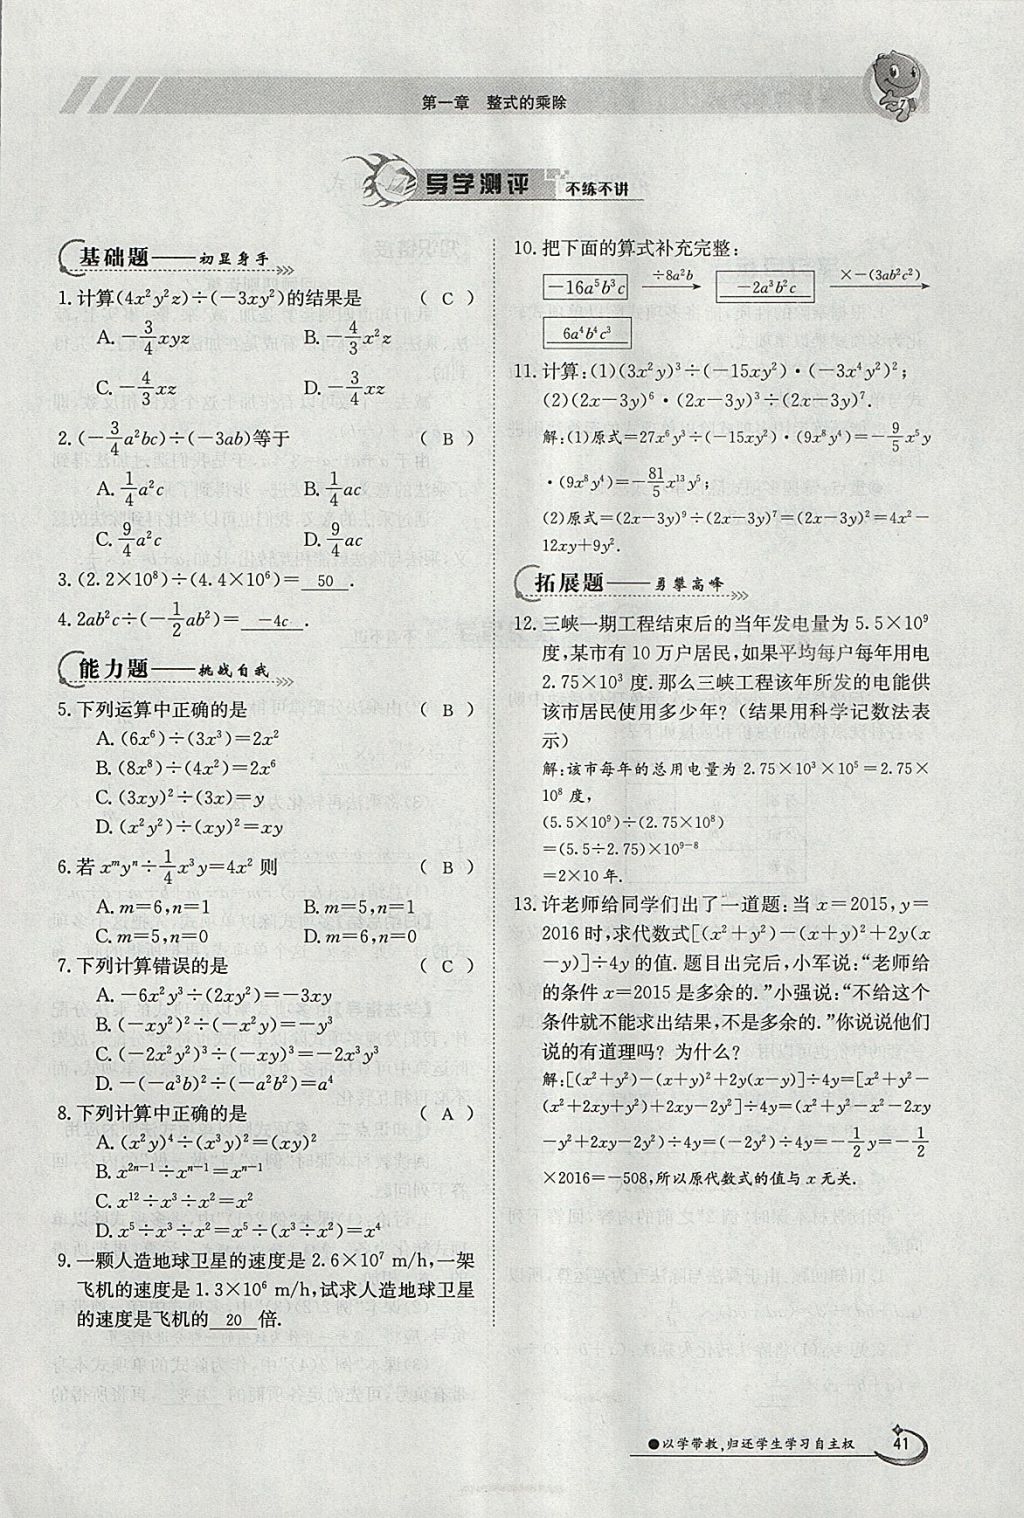 第一章 整式的乘除
导学测评 不练不讲
基础题——初显身手
1.计算(4x²y²z)÷(-3xy²)的结果是 ( C )
A.-3/4xyz B.-4/3x²z
C.-4/3xz D.-3/4xz
2.(-3/4a²bc)÷(-3ab)等于 ( B )
A.1/4a²c B.1/4ac
C.9/4a²c D.9/4ac
3.(2.2×10⁸)÷(4.4×10⁶)= 50 .
4.2ab²c÷(-1/2ab²)= -4c .
能力题——挑战自我
5.下列运算中正确的是 ( B )
A.(6x⁶)÷(3x³)=2x²
B.(8x⁸)÷(4x²)=2x⁶
C.(3xy)²÷(3x)=y
D.(x²y²)÷(xy)²=xy
6.若 xᵐyⁿ÷1/4x³y=4x² 则 ( B )
A.m=6,n=1 B.m=5,n=1
C.m=5,n=0 D.m=6,n=0
7.下列计算错误的是 ( C )
A.-6x²y³÷(2xy²)=-3xy
B.(-xy²)²÷(-x²y)=-y³
C.(-2x²y²)³÷(-xy)³=-2x³y³
D.-(-a³b)²÷(-a²b²)=a⁴
8.下列计算中正确的是 ( A )
A.(x²y)⁴÷(x³y)²=(xy)²
B.x²ⁿ⁻¹÷xⁿ⁻¹=xⁿ⁻¹
C.x¹²÷x³÷x²=x²
D.x⁵÷x³÷x²=x⁵÷(x³÷x²)=x⁴
9.一颗人造地球卫星的速度是 2.6×10⁷ m/h,一架
飞机的速度是 1.3×10⁶ m/h,试求人造地球卫星
的速度是飞机的 20 倍.
10.把下面的算式补充完整:
-16a⁵b³c ÷8a²b -2a³b²c ×-(3ab²c²)
6a⁴b⁴c³
11.计算:(1)(3x²y)³÷(-15xy²)·(-3x⁴y²)²;
(2)(2x-3y)⁶·(2x-3y)³÷(2x-3y)⁷.
解:(1)原式=27x⁶y³÷(-15xy²)·(9x⁸y⁴)=-9/5x⁵y
·(9x⁸y⁴)=-81/5x¹³y⁵;
(2)原式=(2x-3y)⁹÷(2x-3y)⁷=(2x-3y)²=4x²-
12xy+9y².
拓展题——勇攀高峰
12.三峡一期工程结束后的当年发电量为 5.5×10⁹
度,某市有 10 万户居民,如果平均每户每年用电
2.75×10³ 度.那么三峡工程该年所发的电能供
该市居民使用多少年?(结果用科学记数法表
示)
解:该市每年的总用电量为 2.75×10³×10⁵=2.75×
10⁸ 度,
(5.5×10⁹)÷(2.75×10⁸)
=(5.5÷2.75)×10⁹⁻⁸
=2×10 年.
13.许老师给同学们出了一道题:当 x=2015,y=
2016 时,求代数式[(x²+y²)-(x+y)²+2y(x
-y)]÷4y的值.题目出完后,小军说:“老师给
的条件 x=2015 是多余的.”小强说:“不给这个
条件就不能求出结果,不是多余的.”你说说他们
说的有道理吗?为什么?
解:[(x²+y²)-(x+y)²+2y(x-y)]÷4y=[x²+y²-
(x²+2xy+y²)+2xy-2y²]÷4y=(x²+y²-x²-2xy
-y²+2xy-2y²)÷4y=(-2y²)÷4y=-1/2y=-1/2
×2016=-508,所以原代数式的值与 x 无关.
●以学带教,归还学生学习自主权
41